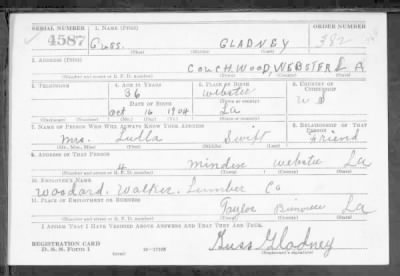 SERIAL NUMBER 1. NAME (Print) ORDER NUMBER
4587 Guss. GLADNEY 382
(First) (Middle) (Last)
2. ADDRESS (Print)
COUCHWOOD WEBSTER LA
(Number and street or R. F. D. number) (Town) (County) (State)
3. TELEPHONE 4. AGE IN YEARS 5. PLACE OF BIRTH 6. COUNTRY OF CITIZENSHIP
36 Webster
DATE OF BIRTH (Town or county) U S
Oct 16 1904 La
(Exchange) (Number) (Mo.) (Day) (Yr.) (State or country)
7. NAME OF PERSON WHO WILL ALWAYS KNOW YOUR ADDRESS 8. RELATIONSHIP OF THAT PERSON
Mrs. Lulla Swift Friend
(Mr., Mrs., Miss) (First) (Middle) (Last)
9. ADDRESS OF THAT PERSON
4 Minden Webster La
(Number and street or R. F. D. number) (Town) (County) (State)
10. EMPLOYER'S NAME
Woodard. Walker. Lumber Co
11. PLACE OF EMPLOYMENT OR BUSINESS
Taylor La
(Number and street or R. F. D. number) (Town) (County) (State)
I AFFIRM THAT I HAVE VERIFIED ABOVE ANSWERS AND THAT THEY ARE TRUE.
REGISTRATION CARD Guss Gladney
D. S. S. Form 1 16—17105 (Registrant's signature)